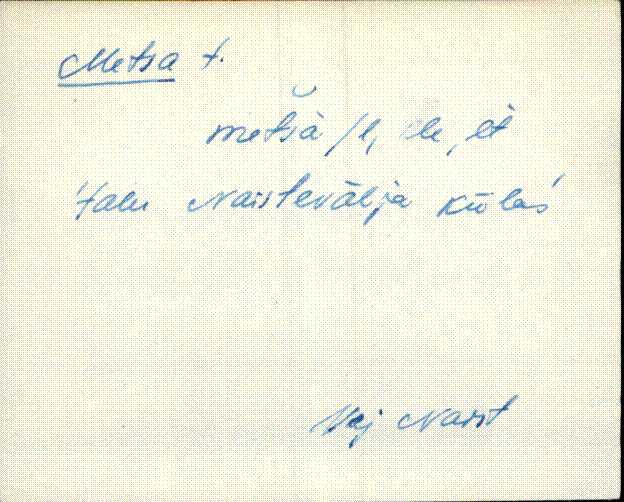 Metsa t.
metsä /l, ele, et
Talu Naistevälja külas
Naist